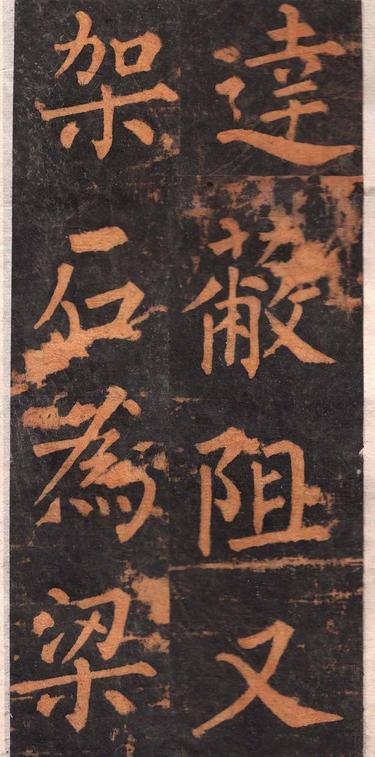 達蔽阻又
架石為梁